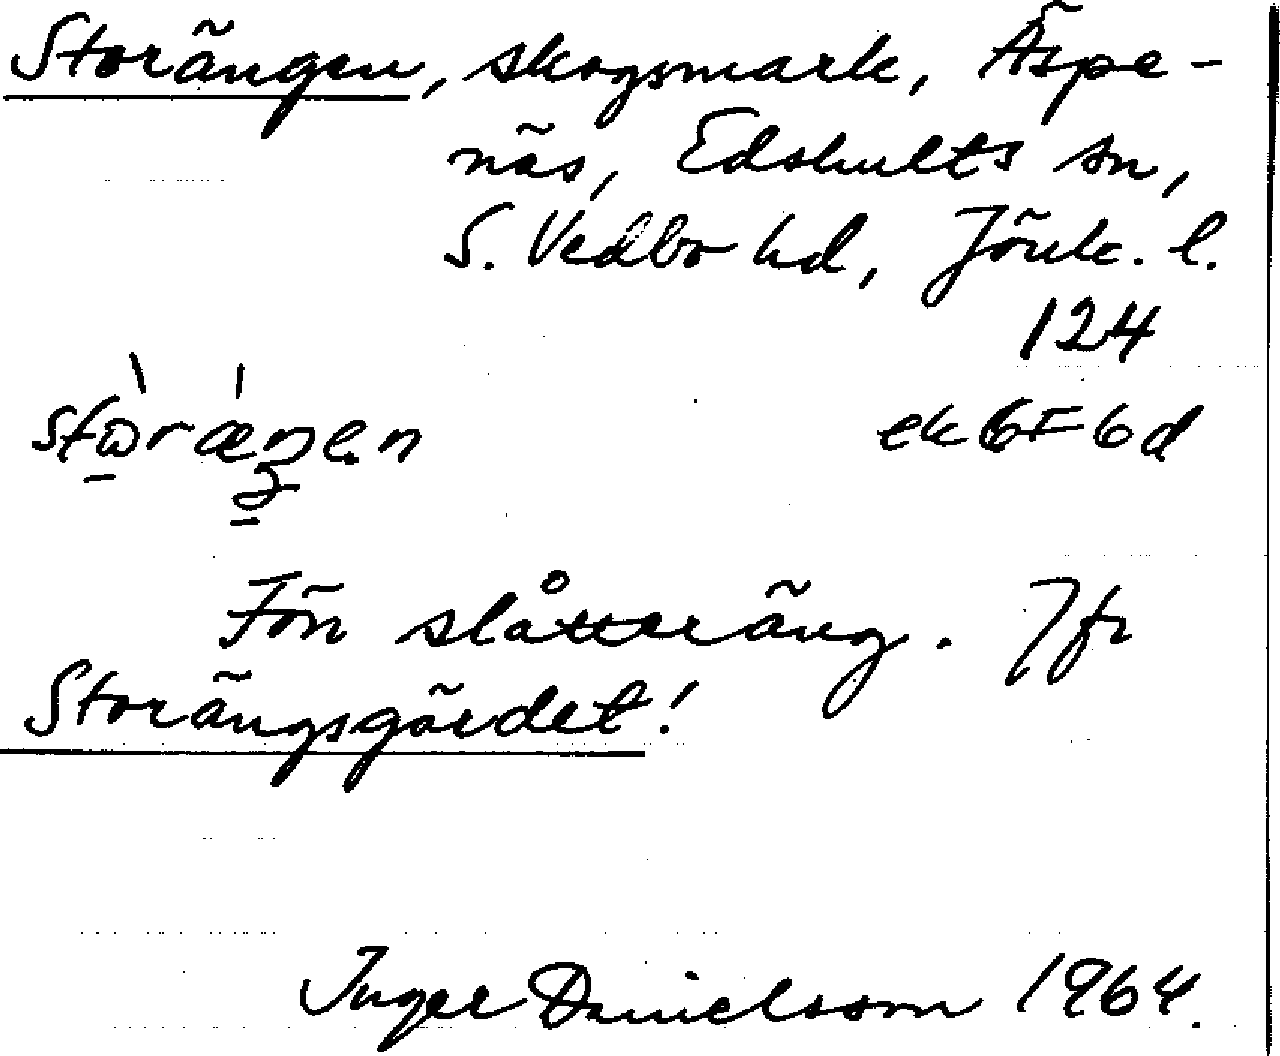 Storängen, skogsmark, Äspe-
näs, Edshults sn,
S. Vedbo hd, Jönk. l.
124
ek 6F6d
Förr slåtteräng. Jfr
Storängsgärdet!
Inger Danielsson 1964.